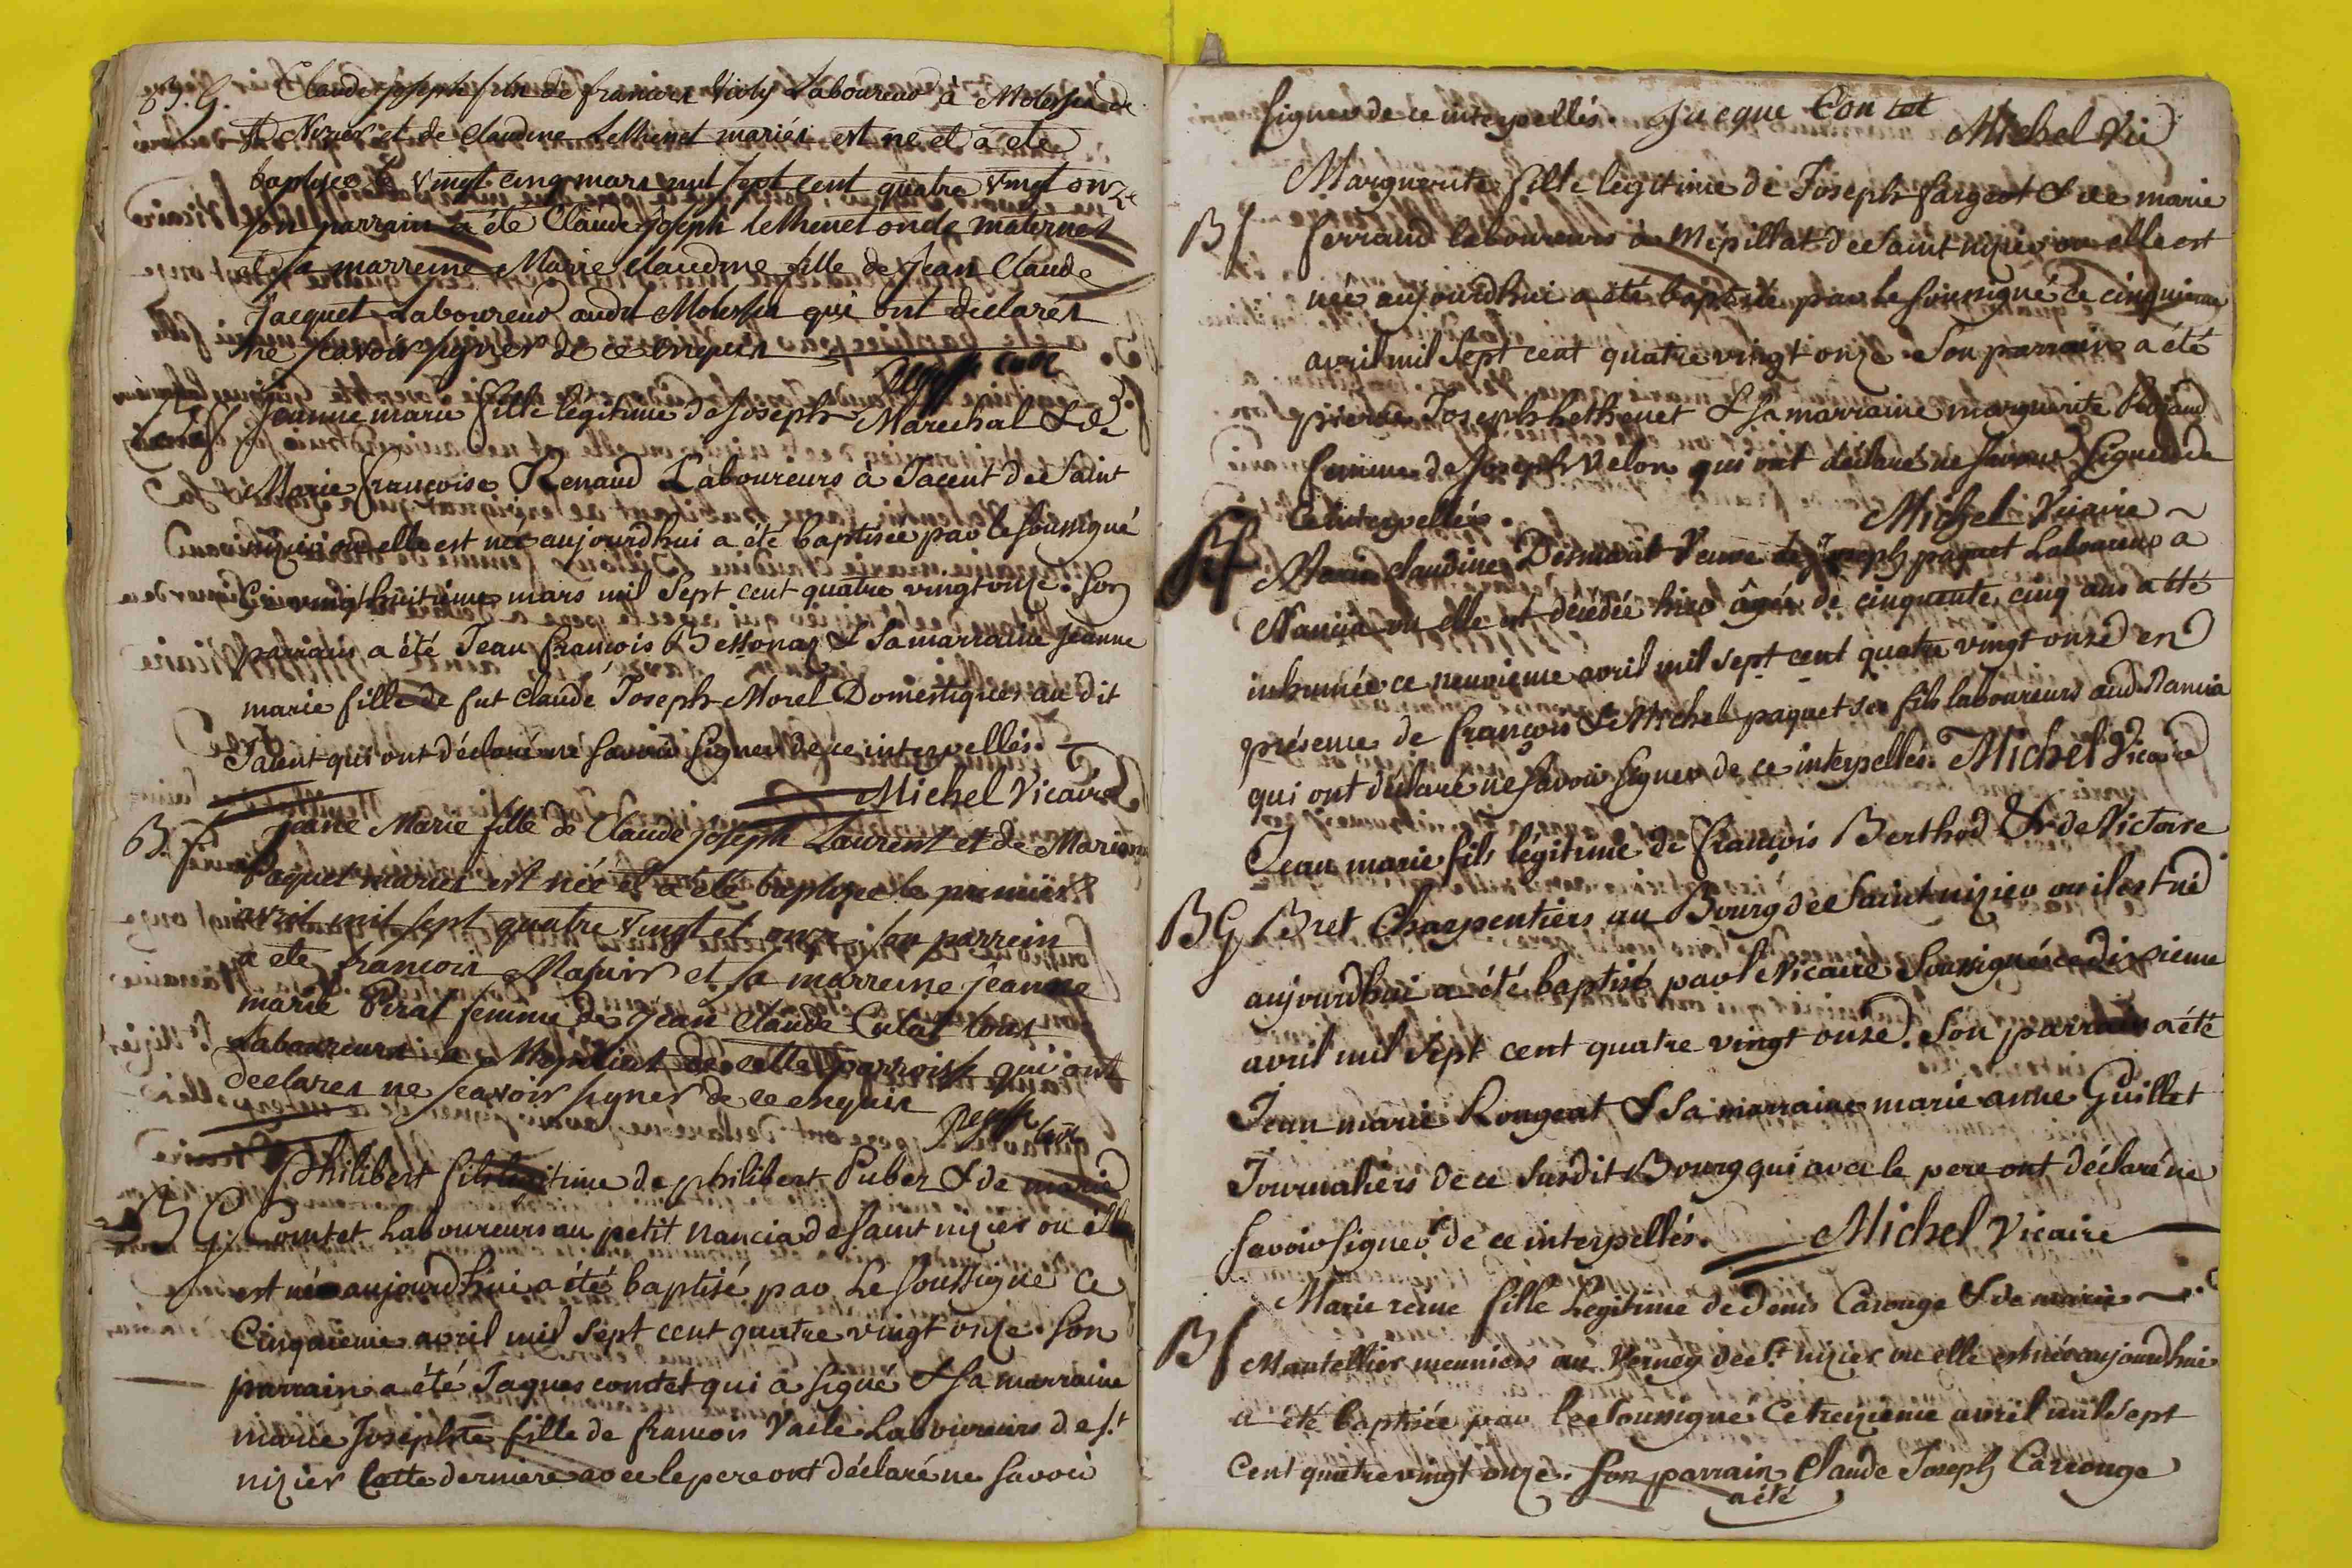 B. G. Claude joseph fils de francois Laboureur à Molessia de
St Nizier et de Claudine Lethenet mariés est né et a ete
baptisé le vingt cinq mars mil sept cent quatre vingt onze
son parrain a été Claude joseph lethenet oncle maternel
et sa marreine Marie Claudine fille de Jean Claude
Jacquet Laboureur audit Molessia qui ont declarés
ne scavoir signer de ce enquis
Bf Jeanne marie fille légitime de Joseph Marechal & de
Marie francoise Renaud Laboureurs à Tacent de Saint
nizier ou elle est née aujourdhui a été baptisée par le soussigné
ce vingt huitieme mars mil Sept cent quatre vingt onze. Son
parrain a été Jean françois Bessonaz & Sa marraine Jeanne
marie fille de fut Claude Joseph Morel Domestiques au dit
Tacent qui ont déclaré ne Savoir Signer de ce interpellés.
Michel Vicaire
B. f. jeane Marie fille de Claude joseph Laurent et de Marianne
Paquet mariés est née et a ete baptisee le premier
avril mil sept quatre vingt et onze son parrein
a ete francois et sa marreine jeanne
marie Pirat femme de jean Claude Culat tous
Laboureurs a Mepiliat de cette parroisse qui ont
declares ne scavoir signer de ce enquis
Philibert fils légitime de philibert Puber & de marie
B G. Comtet Laboureurs au petit nancia de Saint nizier ou il
est né aujourdhui a été baptisé par Le Soussigné Ce
Cinquieme avril mil Sept cent quatre vingt onze. Son
parrain a été Jaques comtet qui a Signé & Sa marraine
marie Josephte fille de francois Vaile Laboureurs de St
nizier Cette derniere avec le pere ont déclaré ne Savoir
Signer de ce interpellés. jacque Contet
Michel Vic
Marguerite fille legitime de Joseph fargeot & de marie
Bf ferraud laboureurs à Mepillat de Saint nizier ou elle est
née aujourdhui a été baptisée par Le Soussigné ce cinquieme
avril mil Sept cent quatre vingt onze. Son parrain a été
pierre Joseph Lethenet & Sa marraine marguerite Pojaud
femme de Joseph Velon qui ont déclaré ne Savoir Signer de
ce interpellés. Michel Vicaire
Sf Marie Claudine Desmarat Veuve de Joseph paquet Laboureur a
Nancia ou elle est décedée hier âgée de cinquante cinq ans a été
inhumée ce neuvieme avril mil Sept cent quatre vingt onze en
présence de françois & Michel paquet ses fils laboureurs aud Nancia
qui ont déclaré ne Savoir Signer de ce interpellés. Michel Vicaire
Jean marie fils légitime de françois Berthod & de Victoire
BG Bret Charpentiers au Bourg de Saint nizier ou il est né
aujourdhui a été baptisé par le Vicaire Soussigné ce dixieme
avril mil Sept cent quatre vingt onze. Son parrain a été
Jean marie Rougeat & Sa marraine marie anne Guillet
Journaliers de ce Susdit Bourg qui avec le pere ont déclaré ne
Savoir Signer de ce interpellés. Michel Vicaire
Marie reine fille Légitime de Denis Carouge & de marie
Bf Mantellier meuniers au Verney de St nizier ou elle est née aujourdhui
a été baptisée par le Soussigné ce treizieme avril mil Sept
Cent quatre vingt onze. Son parrain Claude Joseph Carrouge
a été